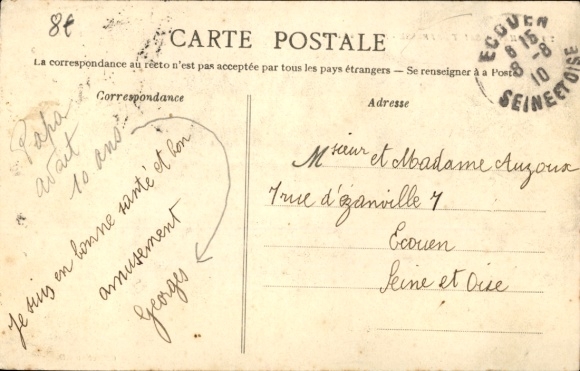 8t
CARTE POSTALE
La correspondance au recto n'est pas acceptée par tous les pays étrangers — Se renseigner à a Poste
Correspondance
Papa
avait
10 ans
Je suis en bonne santé et bon
amusement
Georges
Adresse
Msieur et Madame Auzoux
7 rue d'Ézanville 7
Ecouen
Seine et Oise
ECOUEN
8 15
8 -8
10
SEINE ET OISE